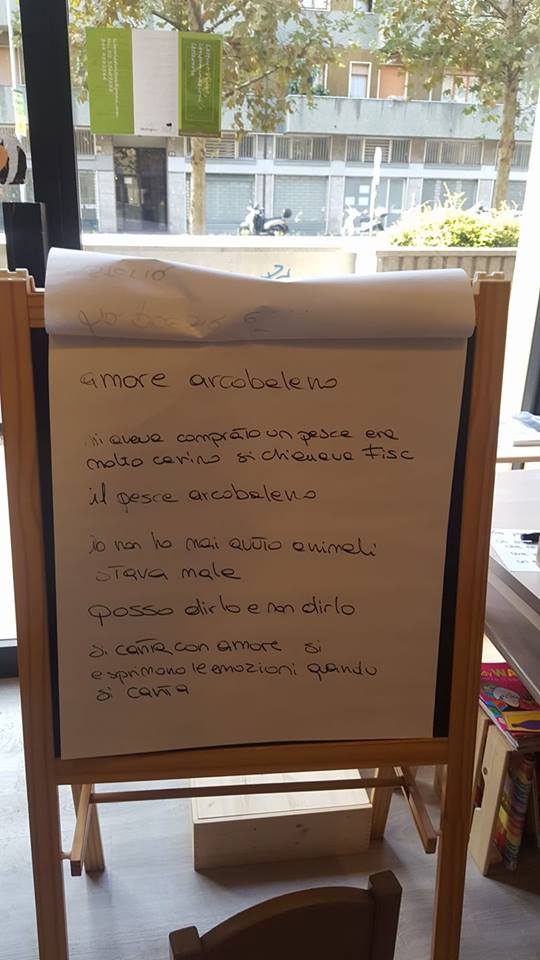 amore arcobaleno
aveva comprato un pesce era
molto carino si chiamava Fisc
il pesce arcobaleno
io non ho mai avuto animali
stava male
posso dirlo e non dirlo
si canta con amore si
esprimono le emozioni quando
si canta